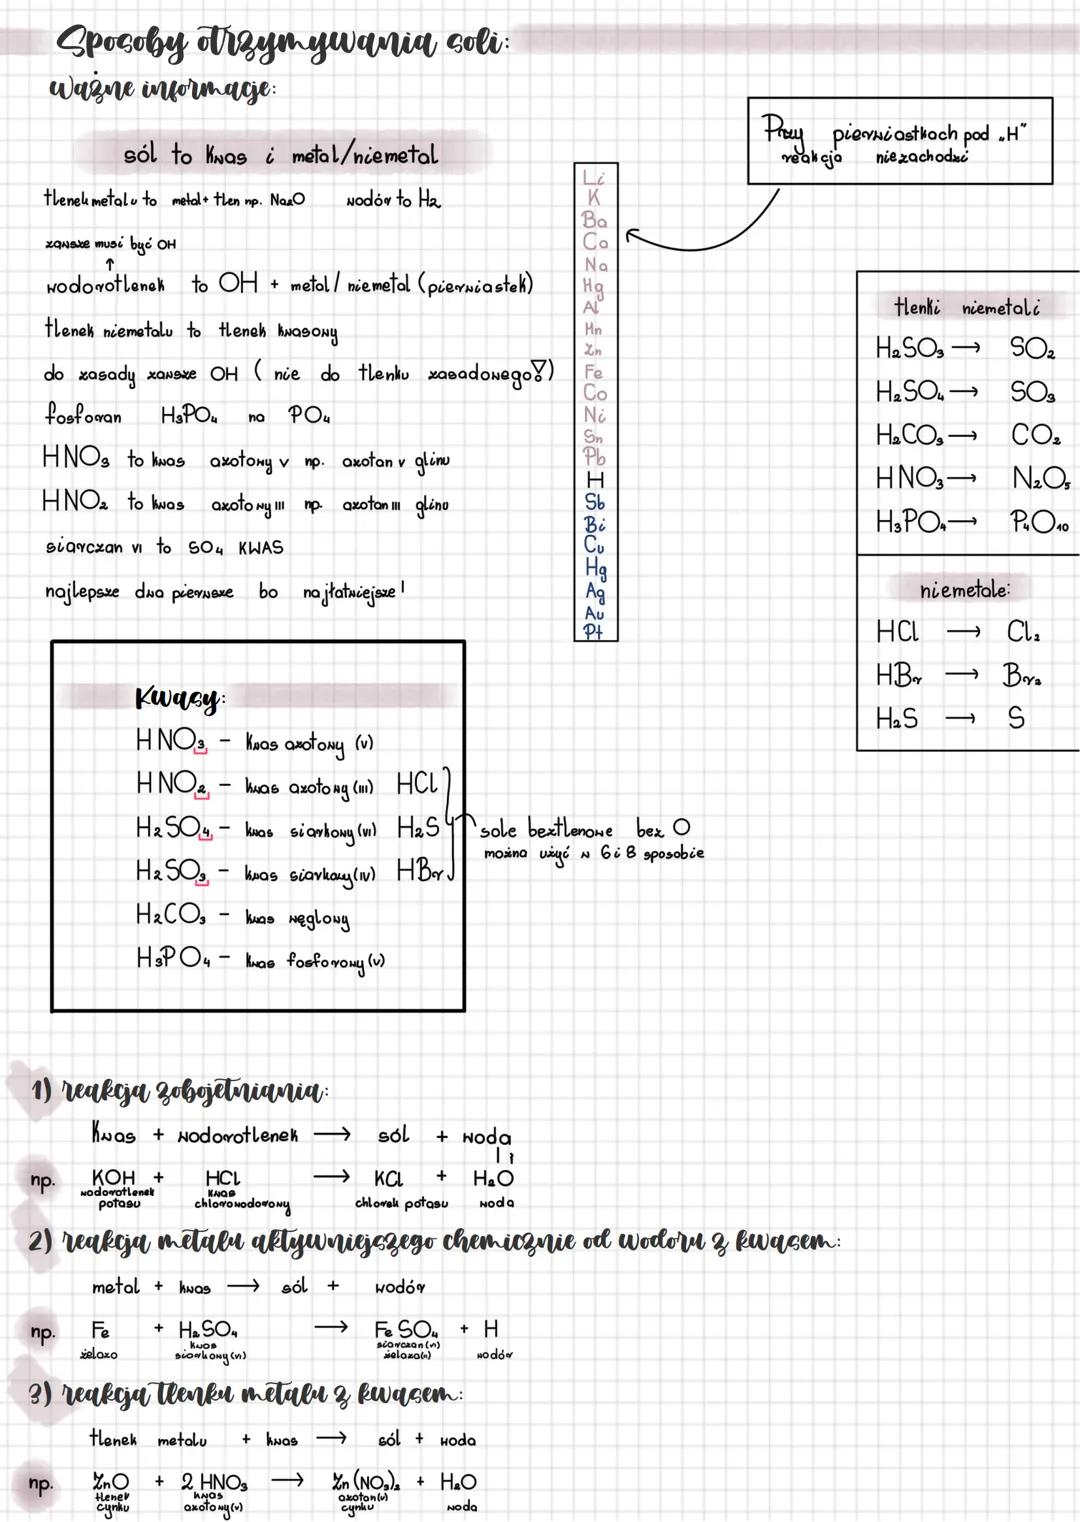 Sposoby otrzymywania soli:
ważne informacje:
sól to kwas i metal/niemetal
tlenek metalu to metal + tlen np. Na₂O wodór to H₂
zawsze musi być OH
↑
wodorotlenek to OH + metal / niemetal (pierwiastek)
tlenek niemetalu to tlenek kwasowy
do zasady zawsze OH ( nie do tlenku zasadowego!)
fosforan H₃PO₄ na PO₄
HNO₃ to kwas azotowy v np. azotan v glinu
HNO₂ to kwas azotowy III np. azotan III glinu
siarczan VI to SO₄ KWAS
najlepsze dwa pierwsze bo najłatwiejsze!
Przy pierwiastkach pod „H"
reakcja nie zachodzi
Li
K
Ba
Ca
Na
Hg
Al
Mn
Zn
Fe
Co
Ni
Sn
Pb
H
Sb
Bi
Cu
Hg
Ag
Au
Pt
tlenki niemetali
H₂SO₃ → SO₂
H₂SO₄ → SO₃
H₂CO₃ → CO₂
HNO₃ → N₂O₅
H₃PO₄ → P₄O₁₀
niemetale:
HCl → Cl₂
HBr → Br₂
H₂S → S
Kwasy:
HNO₃ - kwas azotowy (v)
HNO₂ - kwas azotowy (III) HCl
H₂SO₄ - kwas siarkowy (VI) H₂S
H₂SO₃ - kwas siarkowy (IV) HBr
H₂CO₃ - kwas węglowy
H₃PO₄ - kwas fosforowy (v)
sole beztlenowe bez O
można użyć w 6 i 8 sposobie
1) reakcja zobojętniania:
kwas + wodorotlenek → sól + woda
np. KOH + HCl → KCl + H₂O
wodorotlenek potasu kwas chlorowodorowy chlorek potasu woda
2) reakcja metalu aktywniejszego chemicznie od wodoru z kwasem:
metal + kwas → sól + wodór
np. Fe + H₂SO₄ → FeSO₄ + H
żelazo kwas siarkowy (VI) siarczan (VI) żelaza (II) wodór
3) reakcja tlenku metalu z kwasem:
tlenek metalu + kwas → sól + woda
np. ZnO + 2 HNO₃ → Zn(NO₃)₂ + H₂O
tlenek cynku kwas azotowy (v) azotan (v) cynku woda